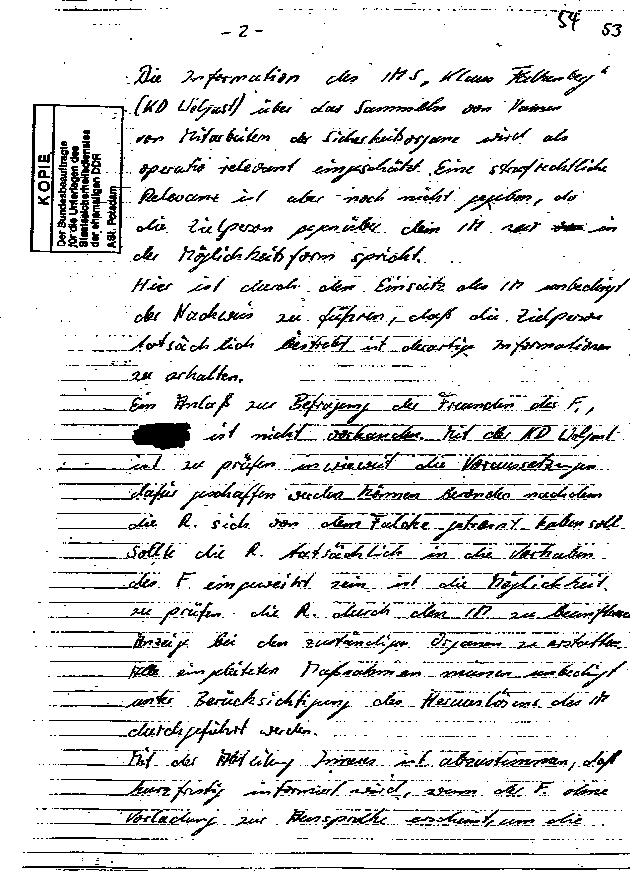 54 53
- 2 -
Die Information des IMS "Klaus Falkenberg"
(KD Wolgast) über das Sammeln von Namen
von Mitarbeitern der Sicherheitsorgane wird als
operativ relevant eingeschätzt. Eine strafrechtliche
Relevanz ist aber noch nicht gegeben, da
die Zielperson gegenüber dem IM nur in
der Möglichkeitsform spricht.
Hier ist durch den Einsatz des IM unbedingt
der Nachweis zu führen, daß die Zielperson
tatsächlich bestrebt ist derartige Informationen
zu erhalten.
Ein Anlaß zur Befragung der Freundin des F.,
ist nicht vorhanden. Mit der KD Wolgast
ist zu prüfen inwieweit die Voraussetzungen
dafür geschaffen werden können nachdem
die R. sich von dem getrennt haben soll.
Sollte die R. tatsächlich in die Vorhaben
des F. eingeweiht sein ist die Möglichkeit
zu prüfen die R. durch den IM zu
Anzeige bei den zuständigen Organen zu erstatten.
Alle eingeleiteten Maßnahmen müssen unbedingt
unter Berücksichtigung des Herauslösens des IM
durchgeführt werden.
Mit der Abteilung Inneres ist abzustimmen, daß
kurzfristig informiert wird, wenn der F. ohne
Vorladung zur Aussprache erscheint, um die
KOPIE
Der Bundesbeauftragte
für die Unterlagen des
Staatssicherheitsdienstes
der ehemaligen DDR
ASt. Potsdam